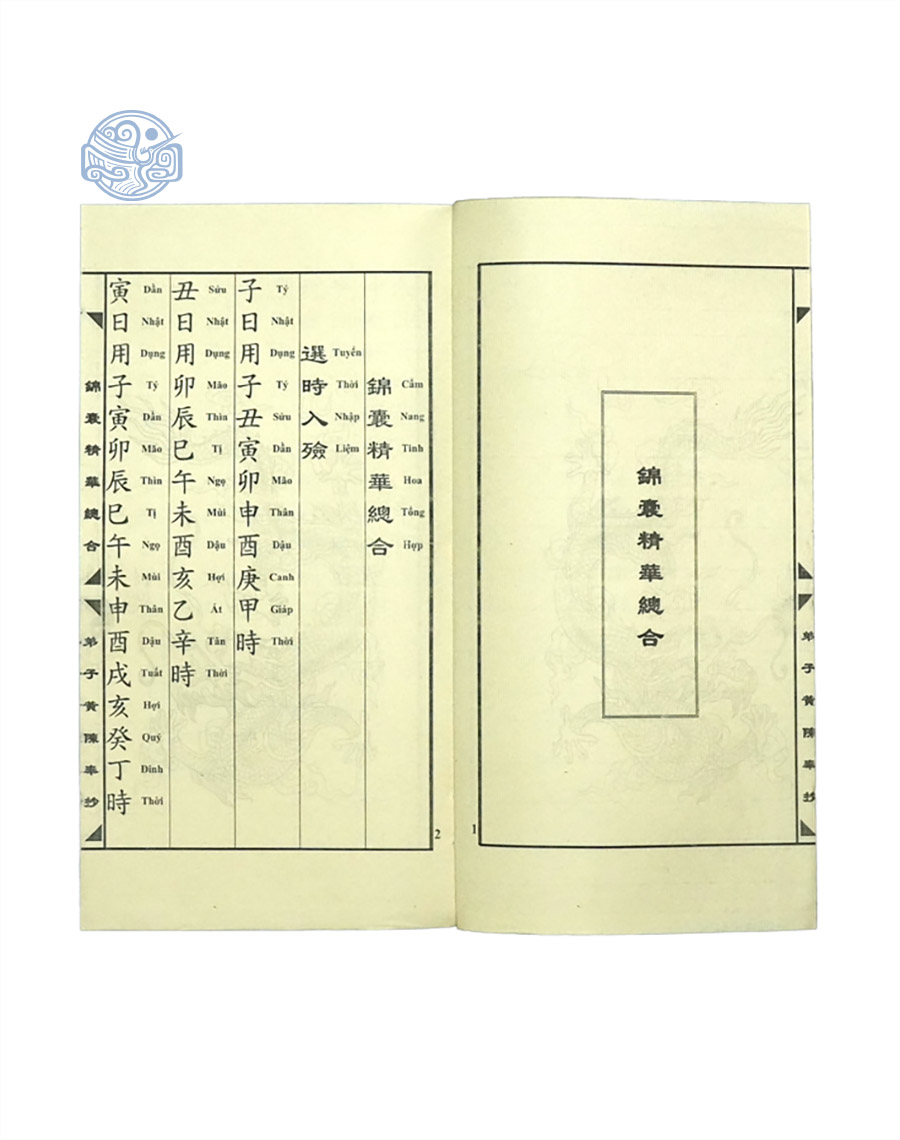 錦囊精華總合
弟子黃陳奉抄
1
錦囊精華總合
Cẩm Nang Tinh Hoa Tổng Hợp
選時入殮
Tuyển Thời Nhập Liệm
子日用子丑寅卯申酉庚甲時
Tý Nhật Dụng Tý Sửu Dần Mão Thân Dậu Canh Giáp Thời
丑日用卯辰巳午未酉亥乙辛時
Sửu Nhật Dụng Mão Thìn Tị Ngọ Mùi Dậu Hợi Ất Tân Thời
寅日用子寅卯辰巳午未申酉戌亥癸丁時
Dần Nhật Dụng Tý Dần Mão Thìn Tị Ngọ Mùi Thân Dậu Tuất Hợi Quý Đinh Thời
錦囊精華總合
弟子黃陳奉抄
2